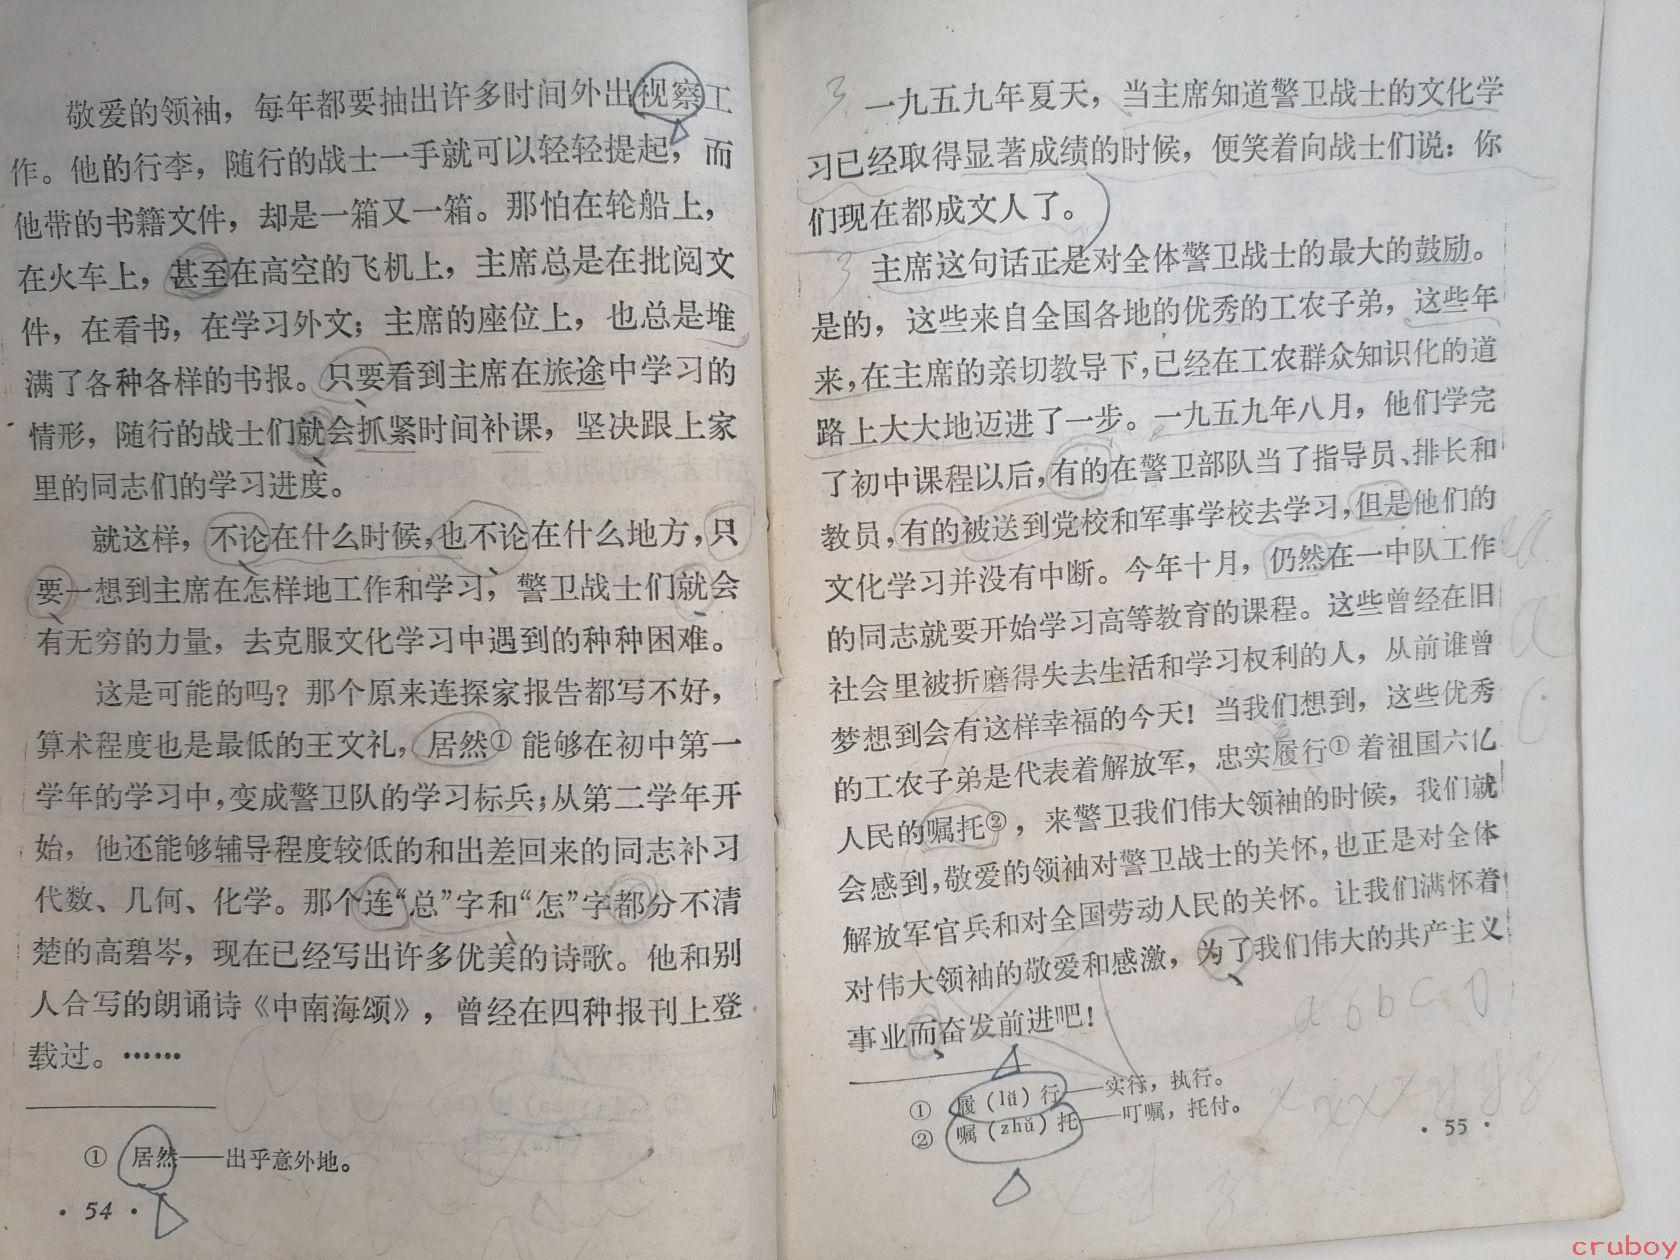 敬爱的领袖，每年都要抽出许多时间外出视察工
作。他的行李，随行的战士一手就可以轻轻提起，而
他带的书籍文件，却是一箱又一箱。那怕在轮船上，
在火车上，甚至在高空的飞机上，主席总是在批阅文
件，在看书，在学习外文；主席的座位上，也总是堆
满了各种各样的书报。只要看到主席在旅途中学习的
情形，随行的战士们就会抓紧时间补课，坚决跟上家
里的同志们的学习进度。
就这样，不论在什么时候，也不论在什么地方，只
要一想到主席在怎样地工作和学习，警卫战士们就会
有无穷的力量，去克服文化学习中遇到的种种困难。
这是可能的吗？那个原来连探家报告都写不好，
算术程度也是最低的王文礼，居然①能够在初中第一
学年的学习中，变成警卫队的学习标兵；从第二学年开
始，他还能够辅导程度较低的和出差回来的同志补习
代数、几何、化学。那个连“总”字和“怎”字都分不清
楚的高碧岑，现在已经写出许多优美的诗歌。他和别
人合写的朗诵诗《中南海颂》，曾经在四种报刊上登
载过。……
① 居然——出乎意外地。
· 54 ·
3 一九五九年夏天，当主席知道警卫战士的文化学
习已经取得显著成绩的时候，便笑着向战士们说：你
们现在都成文人了。
3 主席这句话正是对全体警卫战士的最大的鼓励。
是的，这些来自全国各地的优秀的工农子弟，这些年
来，在主席的亲切教导下，已经在工农群众知识化的道
路上大大地迈进了一步。一九五九年八月，他们学完
了初中课程以后，有的在警卫部队当了指导员、排长和
教员，有的被送到党校和军事学校去学习，但是他们的
文化学习并没有中断。今年十月，仍然在一中队工作
的同志就要开始学习高等教育的课程。这些曾经在旧
社会里被折磨得失去生活和学习权利的人，从前谁曾
梦想到会有这样幸福的今天！当我们想到，这些优秀
的工农子弟是代表着解放军，忠实履行①着祖国六亿
人民的嘱托②，来警卫我们伟大领袖的时候，我们就
会感到，敬爱的领袖对警卫战士的关怀，也正是对全体
解放军官兵和对全国劳动人民的关怀。让我们满怀着
对伟大领袖的敬爱和感激，为了我们伟大的共产主义
事业而奋发前进吧！
① 履（lǚ）行——实行，执行。
② 嘱（zhǔ）托——叮嘱，托付。
· 55 ·
cruboy